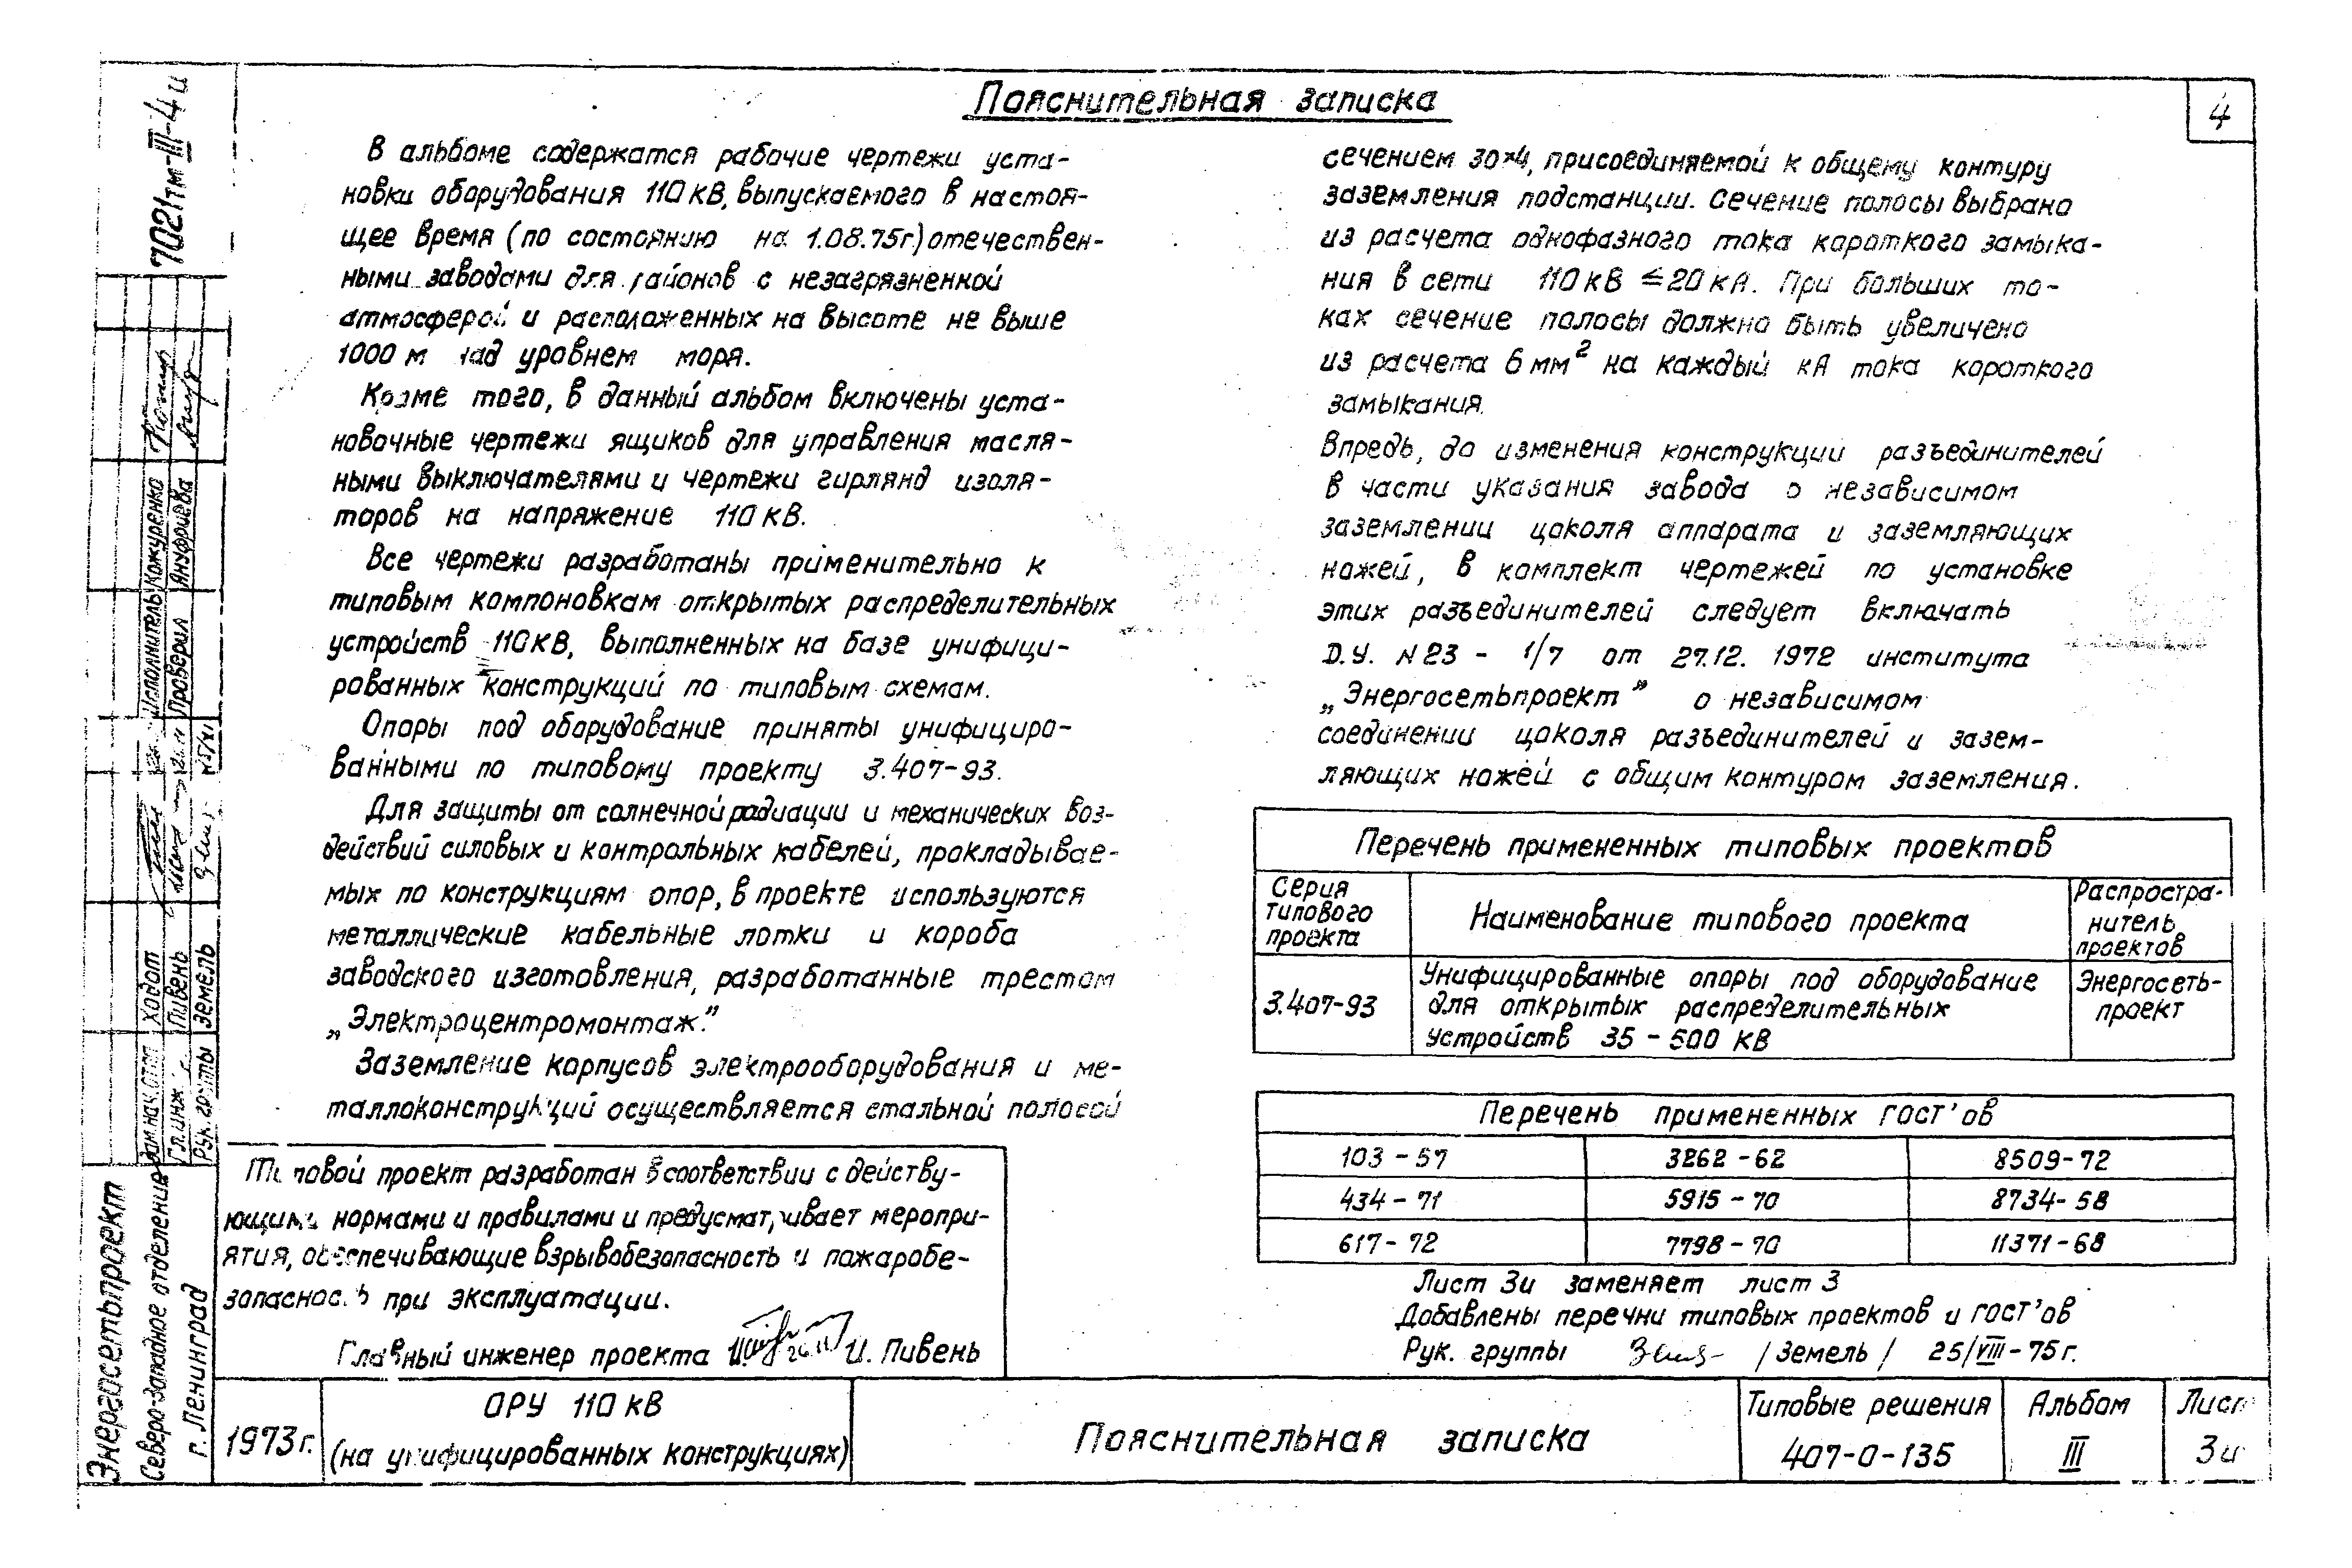 Пояснительная записка
4
В альбоме содержатся рабочие чертежи уста-
новки оборудования 110 кВ, выпускаемого в настоя-
щее время (по состоянию на 1.08.75г.) отечествен-
ными заводами для районов с незагрязненной
атмосферой и расположенных на высоте не выше
1000 м над уровнем моря.
Кроме того, в данный альбом включены уста-
новочные чертежи ящиков для управления масля-
ными выключателями и чертежи гирлянд изоля-
торов на напряжение 110 кВ.
Все чертежи разработаны применительно к
типовым компоновкам открытых распределительных
устройств 110 кВ, выполненных на базе унифици-
рованных конструкций по типовым схемам.
Опоры под оборудование приняты унифициро-
ванными по типовому проекту 3.407-93.
Для защиты от солнечной радиации и механических воз-
действий силовых и контрольных кабелей, прокладывае-
мых по конструкциям опор, в проекте используются
металлические кабельные лотки и короба
заводского изготовления, разработанные трестом
„Электроцентромонтаж.”
Заземление корпусов электрооборудования и ме-
таллоконструкций осуществляется стальной полосой
сечением 30×4, присоединяемой к общему контуру
заземления подстанции. Сечение полосы выбрано
из расчета однофазного тока короткого замыка-
ния в сети 110 кВ ≤ 20 кА. При больших то-
ках сечение полосы должно быть увеличено
из расчета 6 мм² на каждый кА тока короткого
замыкания.
Впредь, до изменения конструкции разъединителей
в части указания завода о независимом
заземлении цоколя аппарата и заземляющих
ножей, в комплект чертежей по установке
этих разъединителей следует включать
Д.У. №23 - 1/7 от 27.12. 1972 института
„Энергосетьпроект” о независимом
соединении цоколя разъединителей и зазем-
ляющих ножей с общим контуром заземления.
Перечень примененных типовых проектов
Серия типового проекта
Наименование типового проекта
Распростра-
нитель
проектов
3.407-93
Унифицированные опоры под оборудование
для открытых распределительных
устройств 35 - 500 кВ
Энергосеть-
проект
Перечень примененных ГОСТ'ов
103 - 57 3262 - 62 8509 - 72
434 - 71 5915 - 70 8734 - 58
617 - 72 7798 - 70 11371 - 68
Лист 3и заменяет лист 3
Добавлены перечни типовых проектов и ГОСТ'ов
Рук. группы /Земель/ 25/VIII - 75 г.
Типовой проект разработан в соответствии с действу-
ющими нормами и правилами и предусматривает меропри-
ятия, обеспечивающие взрывобезопасность и пожаробе-
зопасность при эксплуатации.
Главный инженер проекта И. Пивень
1973г.
ОРУ 110 кВ
(на унифицированных конструкциях)
Пояснительная записка
Типовые решения
407-0-135
Альбом
III
Лист
3и
7021тм-III-4и
Исполнитель Кожуренко
Проверил Ануфриева
Зам.нач.отд. Ходот
Гл.инж. Пивень
Рук. группы Земель
Энергосетьпроект
Северо-западное отделение
г. Ленинград